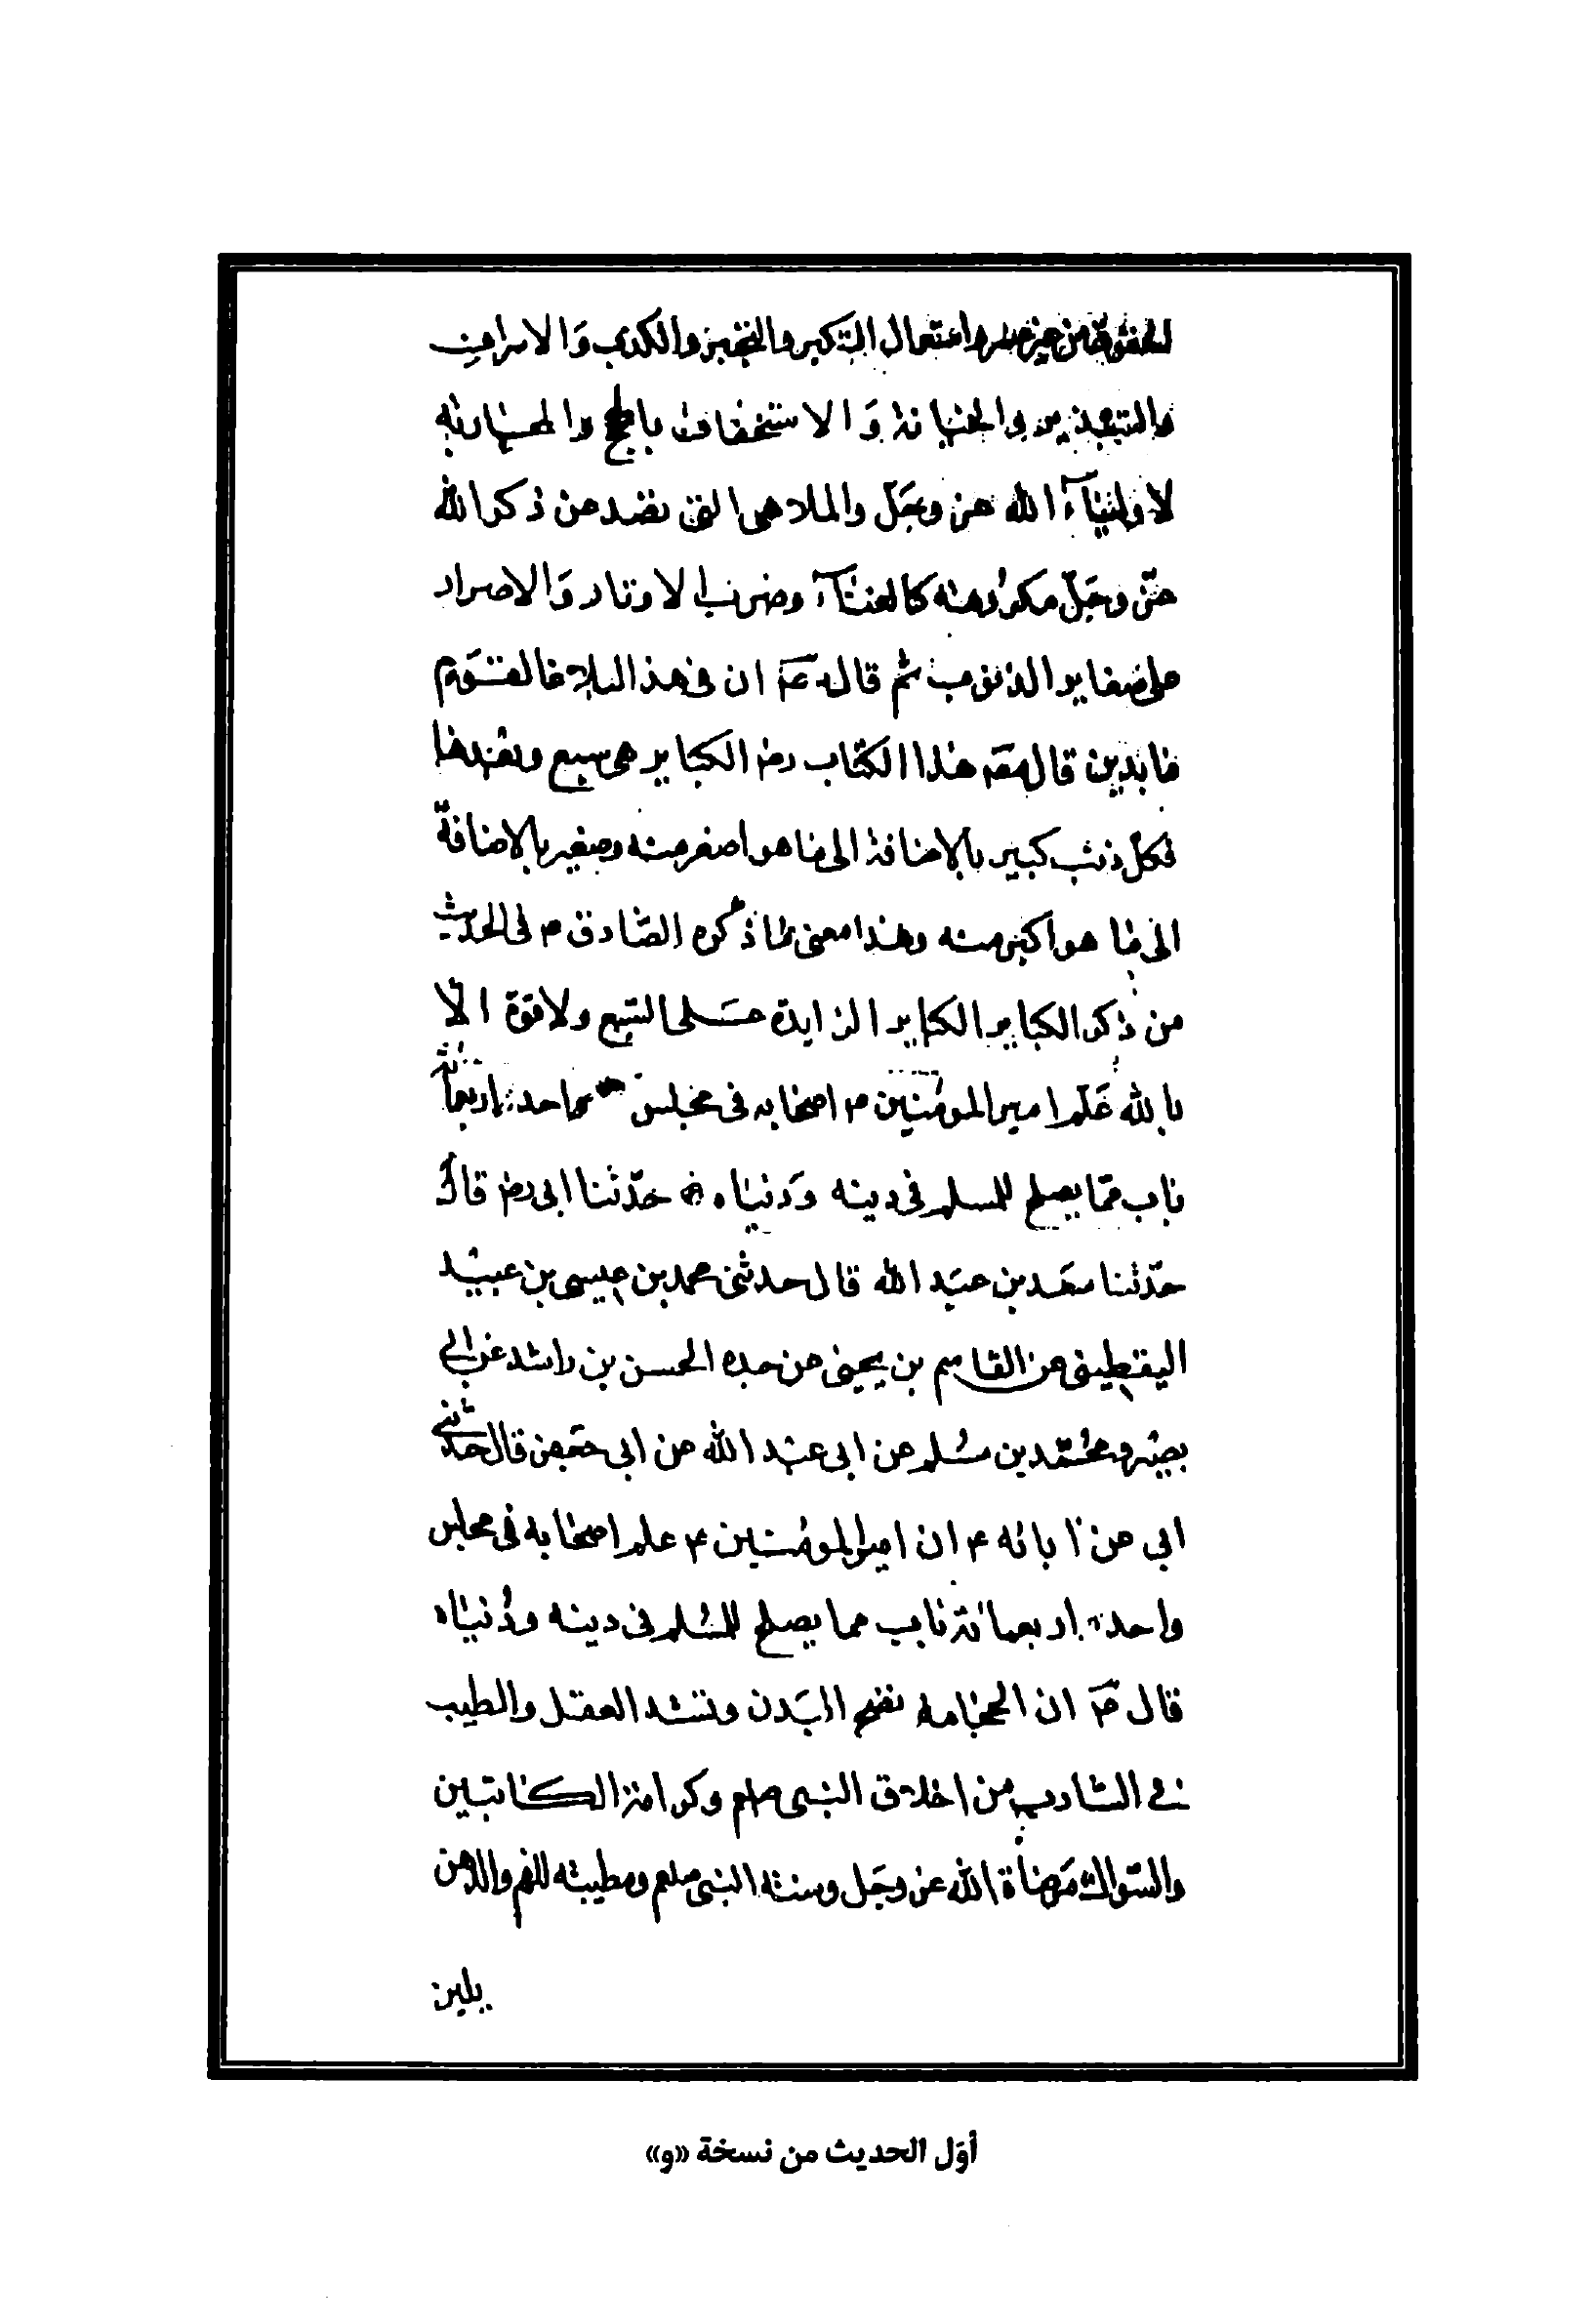 الحقوق من غير عسر واستعمال التكبر والتجبر والكذب والاسراف
والتبذير والخيانة وَالاستخفاف بالحج والمحاربة
لاولياء الله عز وجَلّ والملاهى التى تصد عن ذكر الله
عزّ وجَلّ مكروهة كالغناء وضرب الاوتار وَالاصرار
على صغاير الذنوب ثم قال عَ ان فى هذا لبلاغا لقوم
عابدين قال مصَ هذا الكتاب رض الكباير هى سبع وبعدها
فكل ذنب كبير بالاضافة الى ما هو اصغر منه وصغير بالاضافة
الى ما هو اكبر منه وهذا معنى ما ذكره الصّادق ع فى الحديث
من ذكر الكباير الكباير الزايدة على السّبع ولا قوّة الّا
بالله عَلّم امير المومنين ع اصحابه فى مجلس واحد اربعمائة
باب ممّا يصلح للمسلم فى دينه وَدنياه حدّثنا ابى رض قال
حدّثنا سعَد بن عبَد الله قال حدثنى محمد بن عيسى بن عبيد
اليقطينى عن القاسم بن يحيى عن جده الحسن بن راشد عن ابى
بصير ومحُمّد بن مسُلم عن ابى عبد الله عن ابى جعَفر قال حدثنى
ابى عن آبائه ع ان امير المومنين ع علم اصحابه فى مجلس
واحد اربعمائة باب مما يصلح للمسُلم فى دينه ودُنياه
قال عَ ان الحجامة تصح البَدن وتشد العقل والطيب
فے الشارب من اخلاق النبى صلعم وكرامة الكاتبين
والسّواك مَرضاة الله عز وجَل وسنة النبى صلعم ومطيبة للفم والدهن
يلين
أوَل الحديث من نسخة «و»